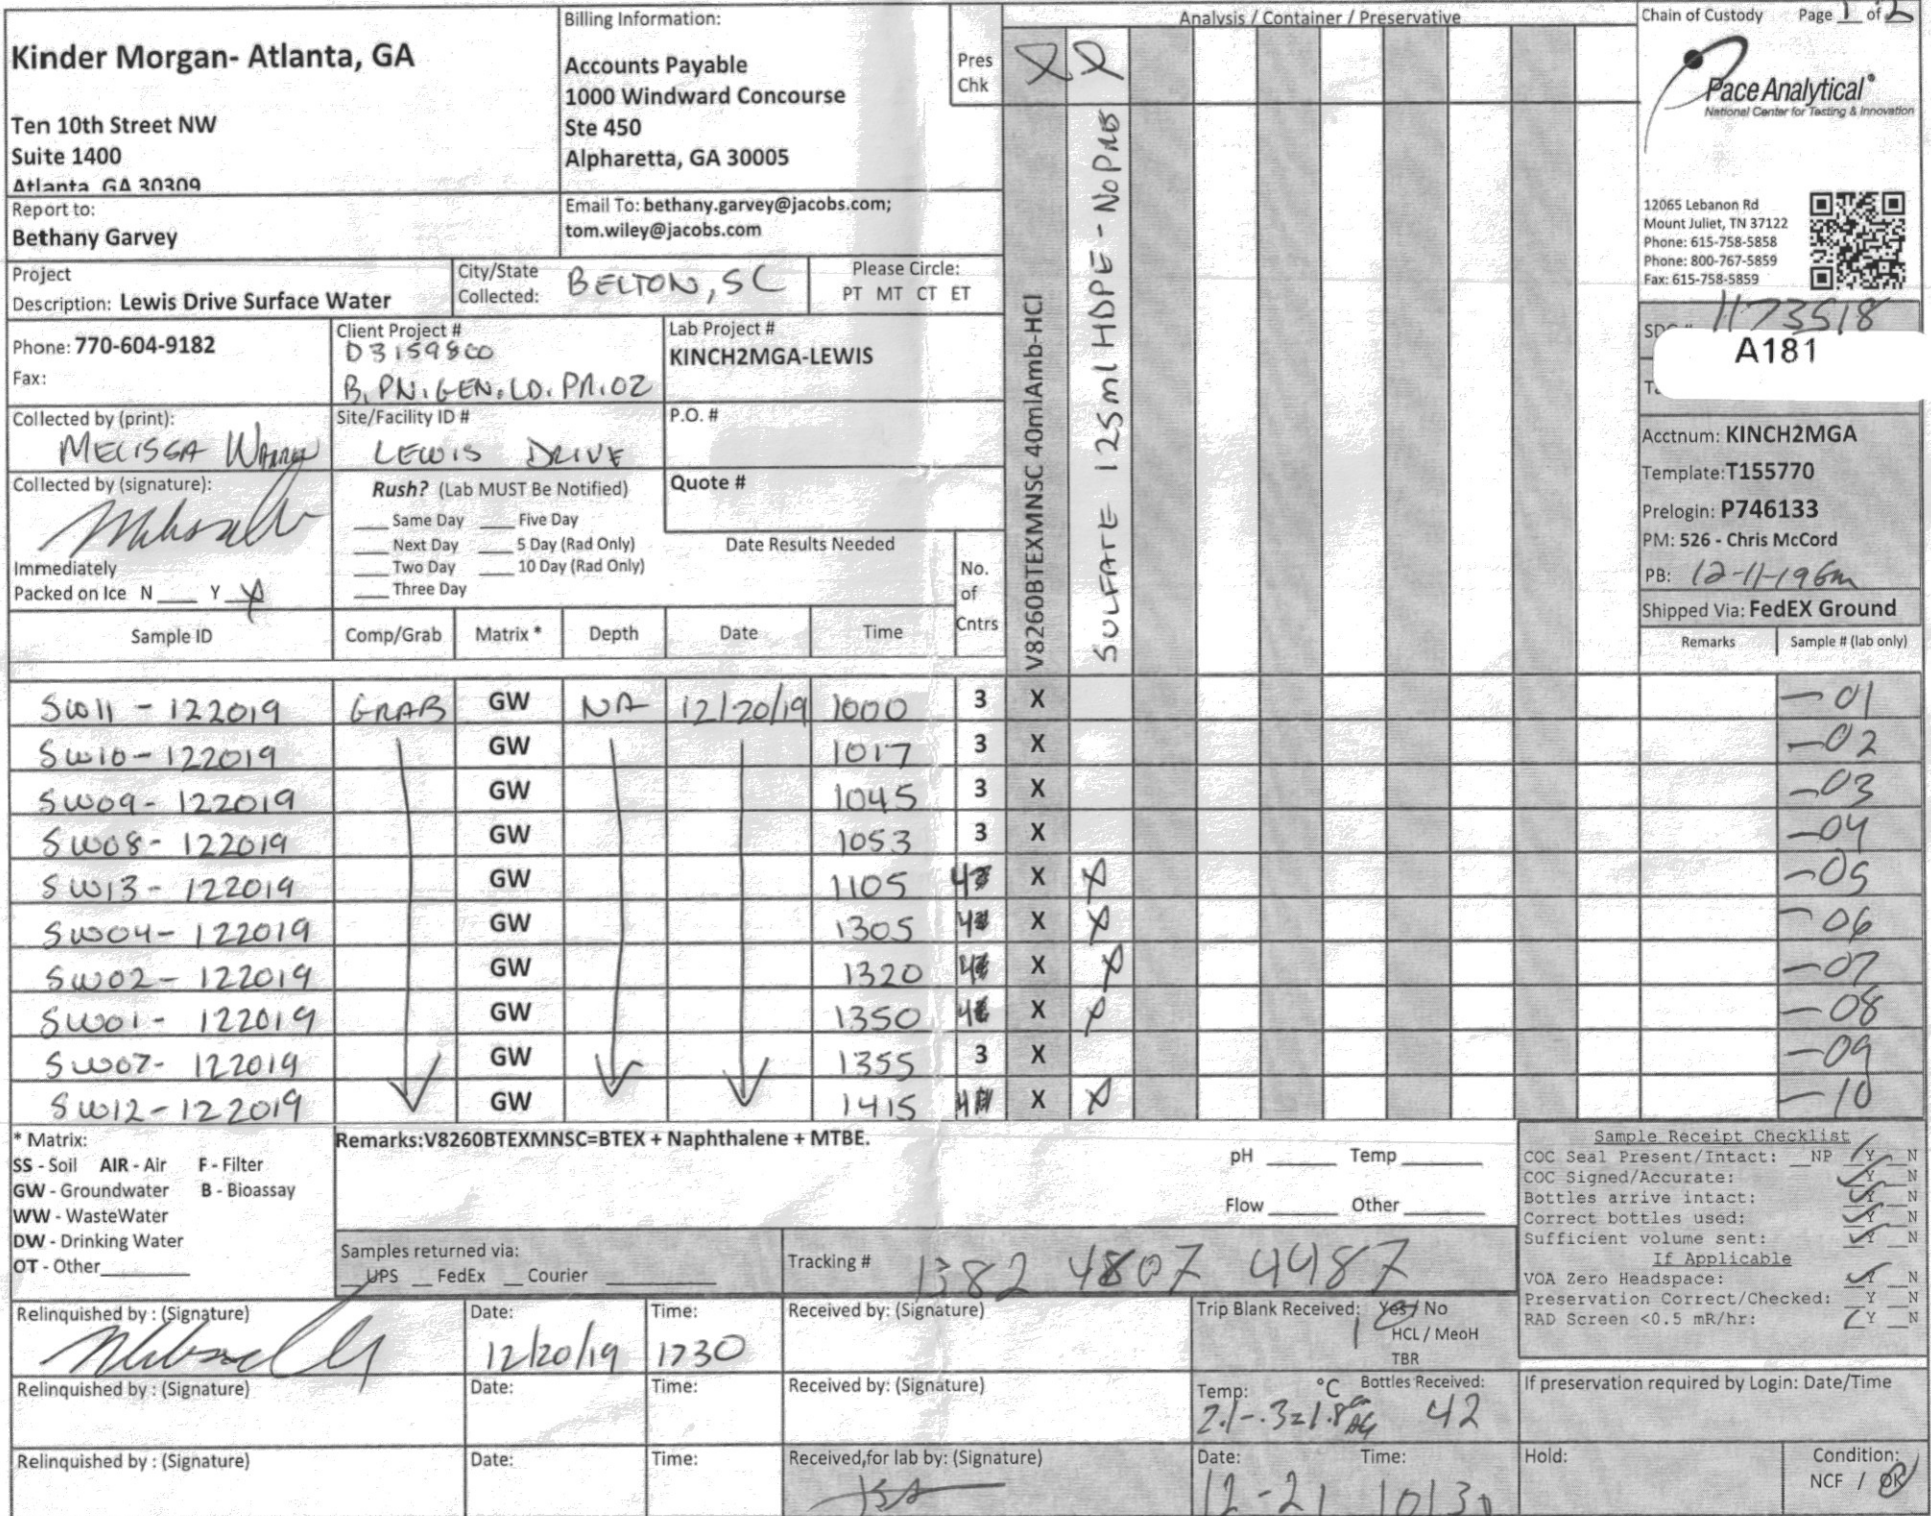 Kinder Morgan- Atlanta, GA
Ten 10th Street NW
Suite 1400
Atlanta GA 30309
Billing Information:
Accounts Payable
1000 Windward Concourse
Ste 450
Alpharetta, GA 30005
Pres Chk
Analysis / Container / Preservative
Chain of Custody Page 1 of 2
Pace Analytical®
National Center for Testing & Innovation
12065 Lebanon Rd
Mount Juliet, TN 37122
Phone: 615-758-5858
Phone: 800-767-5859
Fax: 615-758-5859
Report to:
Bethany Garvey
Email To: bethany.garvey@jacobs.com;
tom.wiley@jacobs.com
Project
Description: Lewis Drive Surface Water
City/State
Collected: BELTON, SC
Please Circle:
PT MT CT ET
Phone: 770-604-9182
Fax:
Client Project #
D3159800
B.PN.GEN.LD.PR.02
Lab Project #
KINCH2MGA-LEWIS
Collected by (print):
MELISSA
Site/Facility ID #
LEWIS DRIVE
P.O. #
Collected by (signature):
Rush? (Lab MUST Be Notified)
___ Same Day ___ Five Day
___ Next Day ___ 5 Day (Rad Only)
___ Two Day ___ 10 Day (Rad Only)
___ Three Day
Quote #
Date Results Needed
Immediately
Packed on Ice N ___ Y X
No. of Cntrs
V8260BTEXMNSC 40mlAmb-HCl
SULFATE 125ml HDPE - NoPres
SDG # 1173518
A181
Acctnum: KINCH2MGA
Template:T155770
Prelogin: P746133
PM: 526 - Chris McCord
PB: 12-11-19
Shipped Via: FedEX Ground
Sample ID Comp/Grab Matrix * Depth Date Time Remarks Sample # (lab only)
SW11 - 122019 GRAB GW NA 12/20/19 1000 3 X -01
SW10-122019 GW 1017 3 X -02
SW09- 122019 GW 1045 3 X -03
SW08- 122019 GW 1053 3 X -04
SW13- 122019 GW 1105 4 X X -05
SW04- 122019 GW 1305 4 X X -06
SW02- 122019 GW 1320 4 X X -07
SW01- 122019 GW 1350 4 X X -08
SW07- 122019 GW 1355 3 X -09
SW12-122019 GW 1415 4 X X -10
* Matrix:
SS - Soil AIR - Air F - Filter
GW - Groundwater B - Bioassay
WW - WasteWater
DW - Drinking Water
OT - Other
Remarks:V8260BTEXMNSC=BTEX + Naphthalene + MTBE.
pH ______ Temp ______
Flow ______ Other ______
Samples returned via:
__UPS __FedEx __Courier
Tracking # 1382 4807 4487
Sample Receipt Checklist
COC Seal Present/Intact: __NP Y __N
COC Signed/Accurate: Y __N
Bottles arrive intact: Y __N
Correct bottles used: Y __N
Sufficient volume sent: Y __N
If Applicable
VOA Zero Headspace: Y __N
Preservation Correct/Checked: __Y __N
RAD Screen <0.5 mR/hr: Y __N
Relinquished by : (Signature)
Date: 12/20/19
Time: 1730
Received by: (Signature)
Trip Blank Received: Yes / No
HCL / MeoH
TBR
Relinquished by : (Signature)
Date:
Time:
Received by: (Signature)
Temp: °C Bottles Received:
2.1-.3=1.8 42
If preservation required by Login: Date/Time
Relinquished by : (Signature)
Date:
Time:
Received for lab by: (Signature)
Date: 12-21
Time:
Hold:
Condition:
NCF / OK